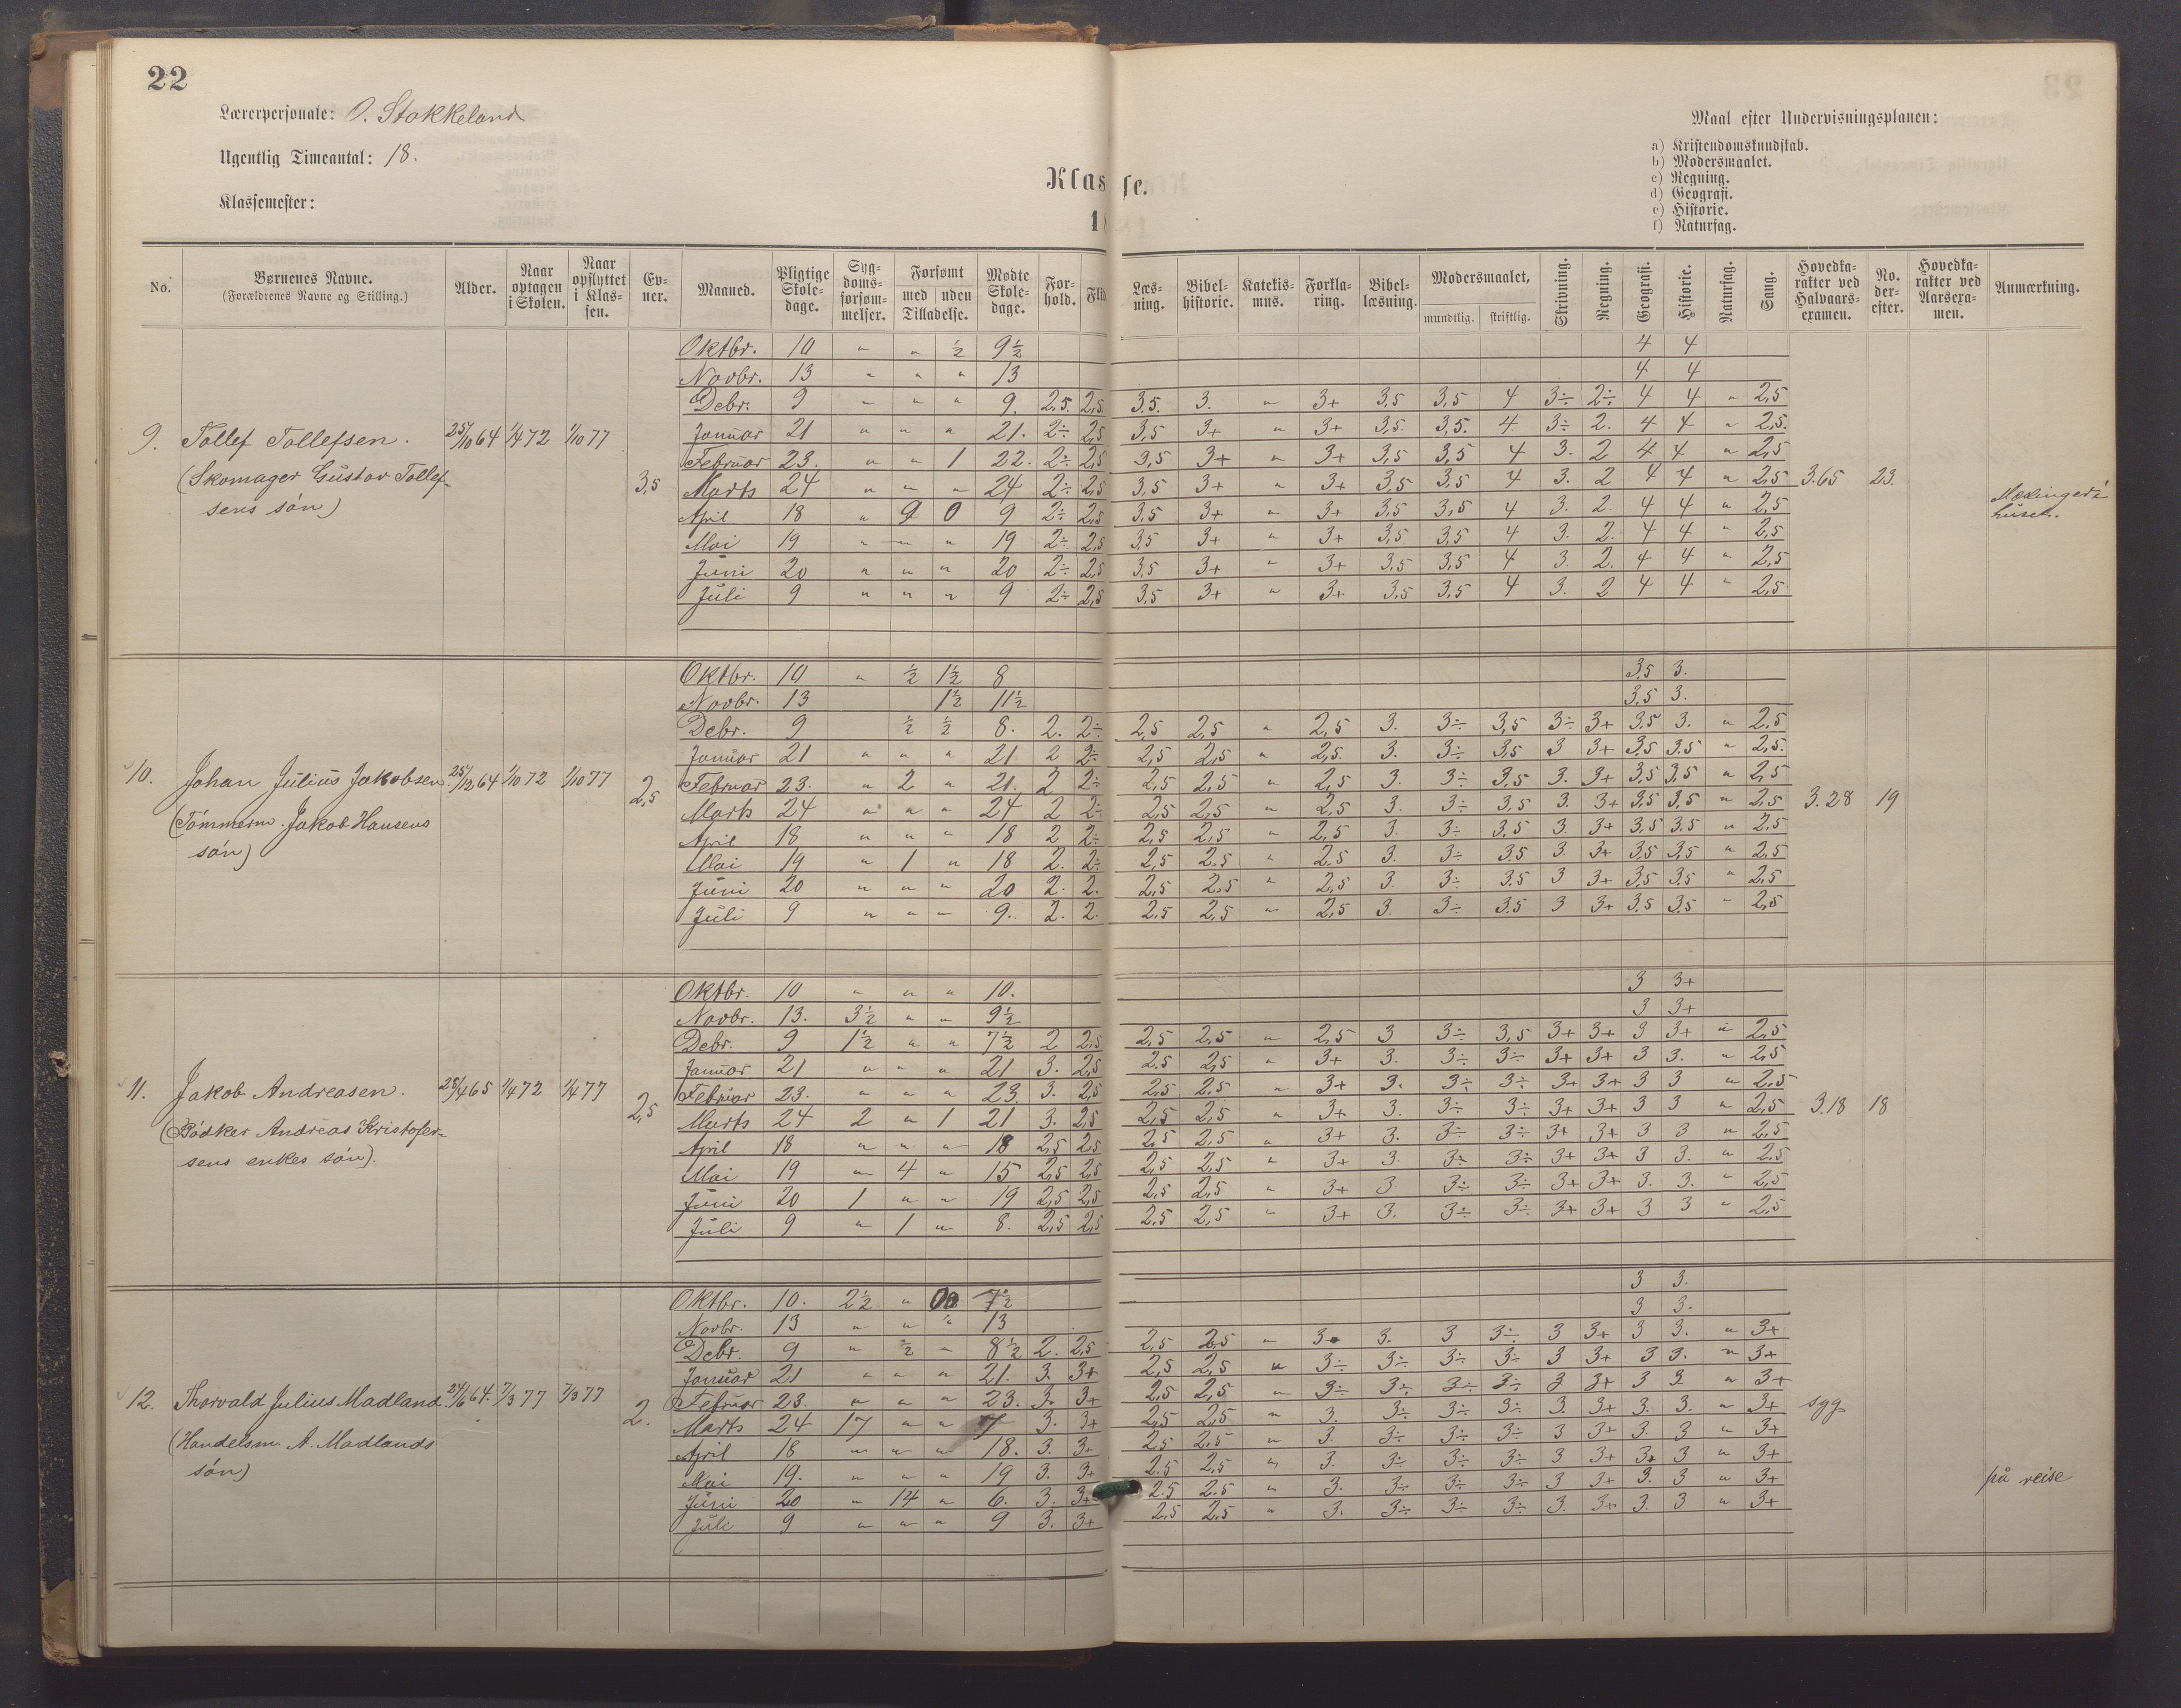 22
Lærerpersonale: O. Stokkeland
Ugentlig Timeantal: 18.
Klassemester:
Klasse.
18
Maal efter Undervisningsplanen:
a) Kristendomskundskab.
b) Modersmaalet.
c) Regning.
d) Geografi.
e) Historie.
f) Naturfag.
No. Børnenes Navne. (Forældrenes Navne og Stilling.) Alder. Naar optagen i Skolen. Naar opflyttet i Klassen. Evner. Maaned. Pligtige Skoledage. Sygdomsforsømmelser. Forsømt med uden Tilladelse. Mødte Skoledage. Forhold. Læsning. Bibelhistorie. Katekismus. Forklaring. Bibellæsning. Modersmaalet, mundtlig. skriftlig. Skrivning. Regning. Geografi. Historie. Naturfag. Sang. Hovedkarakter ved Halvaarsexamen. No. derefter. Hovedkarakter ved Aarsexamen. Anmærkning.
Oktbr. 10 " " ½ 9½ 4 4
Novbr. 13 " " " 13 4 4
Debr. 9 " " " 9. 2,5. 2,5. 3.5. 3. " 3+ 3,5 3,5 4 3÷ 2÷ 4 4 " 2,5
9. Tollef Tollefsen. 25/10 64 1/4 72 1/10 77 Januar 21 " " " 21. 2÷ 2,5 3,5 3+ " 3+ 3,5. 3,5. 4. 3÷ 2. 4 4 " 2,5.
Februar 23. " " 1 22. 2÷ 2,5 3,5 3+ " 3+ 3,5 3,5 4 3. 2 4 4 " 2,5
(Skomager Gustav Tollef- 3,5 Marts 24 " " " 24 2÷ 2,5 3,5 3+ " 3+ 3,5 3,5 4 3. 2 4 4 " 2,5 3.65 23.
sens søn) April 18 " 9 0 9 2÷ 2,5 3,5 3+ " 3+ 3,5 3,5 4 3. 2. 4 4 " 2,5
Mai 19 " " " 19 2÷ 2,5 3,5 3+ " 3+ 3,5 3,5 4 3. 2. 4 4 " 2,5
Juni 20 " " " 20 2÷ 2,5 3,5 3+ " 3+ 3,5 3,5 4 3. 2. 4 4 " 2,5
Juli 9 " " " 9 2÷ 2,5 3,5 3+ " 3+ 3,5 3,5 4 3. 2 4 4 " 2,5
Oktbr. 10 " ½ 1½ 8 3,5 3.
Novbr. 13 1½ 11½ 3,5 3.
Debr. 9 ½ ½ 8. 2. 2÷ 2,5 2,5 " 2,5 3. 3÷ 3,5 3÷ 3+ 3,5 3. " 2,5
Januar 21 " " " 21 2 2÷ 2,5 2,5 " 2,5. 3. 3÷ 3,5 3 3+ 3,5 3.5 " 2,5.
10. Johan Julius Jakobsen 25/12 64 1/10 72 1/10 77 2,5 Februar 23. " 2 " 21. 2 2÷ 2,5 2,5 " 2,5 3. 3÷ 3,5 3. 3+ 3,5 3,5 " 2,5
(Tømmerm. Jakob Hansens Marts 24 " " " 24 2 2÷ 2,5 2,5 " 2,5 3. 3÷ 3,5 3. 3+ 3,5 3,5 " 2,5 3.28 19
søn) April 18 " " " 18 2 2÷ 2,5 2,5 " 2,5 3. 3÷ 3,5 3. 3+ 3,5 3.5 " 2,5
Mai 19 " 1 " 18 2. 2÷ 2,5 2,5 " 2,5 3. 3÷ 3.5 3. 3+ 3,5 3,5 " 2,5
Juni 20 " " " 20 2. 2. 2,5 2,5 " 2,5 3. 3÷ 3.5 3 3+ 3,5 3,5 " 2,5
Juli 9 " " " 9. 2. 2. 2,5 2,5 " 2,5 3. 3÷ 3.5 3 3+ 3,5 3,5 " 2,5
Oktbr. 10 " " " 10. 3 3+
Novbr. 13. 3½ " " 9½ 3 3+
Debr. 9 1½ " " 7½ 2 2,5 2,5 2,5 " 2,5 3 3÷ 3,5 3+ 3+ 3 3+ " 2,5
Januar 21 " " " 21 3. 2,5 2.5 2,5 " 3+ 3. 3÷ 3÷ 3+ 3+ 3 3. " 2,5
11. Jakob Andreasen. 28/4 65 1/4 72 1/4 77 2,5 Februar 23. " " " 23 3. 2,5 2,5 2.5 " 3+ 3. 3÷ 3÷ 3+ 3+ 3 3 " 2,5
(Bødker Andreas Kristofer- Marts 24 2 " 1 21 3. 2,5 2,5 2,5 " 3+ 3. 3÷ 3÷ 3+ 3+ 3 3 " 2,5 3.18 18
sens enkes søn). April 18 " " " 18 2,5 2,5 2,5 2,5 " 3+ 3. 3÷ 3÷ 3+ 3+ 3 3 " 2,5
Mai 19 " 4 " 15 2,5 2,5 2,5 2,5 " 3+ 3. 3÷ 3÷ 3+ 3+ 3 3. " 2.5
Juni 20 1 " " 19 2,5 2,5 2,5 2,5 " 3+ 3 3÷ 3÷ 3+ 3+ 3. 3. " 2,5
Juli 9 " 1 " 8. 2,5 2,5 2,5 2,5 " 3+ 3. 3÷ 3÷ 3+ 3+ 3 3 " 2,5
Oktbr. 10. 2½ " 7½ 3 3.
Novbr. 13 " " " 13 3 3.
Debr. 9 " ½ " 8½ 2. 2,5 2,5 2,5 " 3. 3. 3 3÷ 3 3+ 3 3. " 3+
Januar 21 " " " 21. 3. 3+ 2,5 2,5 " 3÷ 3÷ 3÷ 3÷ 3 3+ 3 3. " 3+
12. Thorvald Julius Madland. 24/6 64. 7/3 77 7/3 77 2. Februar 23. " " " 23. 3. 3+ 2,5 2,5 " 3÷ 3÷ 3÷ 3÷ 3 3+ 3 3 " 3+
Marts 24 17 " " 7 3. 3+ 2,5 2,5 " 3. 3÷ 3÷ 3÷ 3. 3+ 3. 3. " 3+ syg
(Handelsm. A. Madlands April 18 " " " 18. 3. 3+ 2,5 2,5 " 3. 3÷ 3÷ 3÷ 3 3+ 3. 3 " 3+
søn) Mai 19. " " " 19 3. 3+ 2.5 2,5 " 3. 3÷ 3÷ 3÷ 3 3+ 3+ 3 " 3+
Juni 20 " 14 " 6. 3. 3+ 2.5 2.5 " 3. 3÷ 3÷ 3÷ 3 3+ 3. 3 " 3+ på reise
Juli 9 " " " 9 3. 3+ 2,5 2,5 " 3. 3÷ 3÷ 3÷ 3. 3+ 3. 3 " 3+